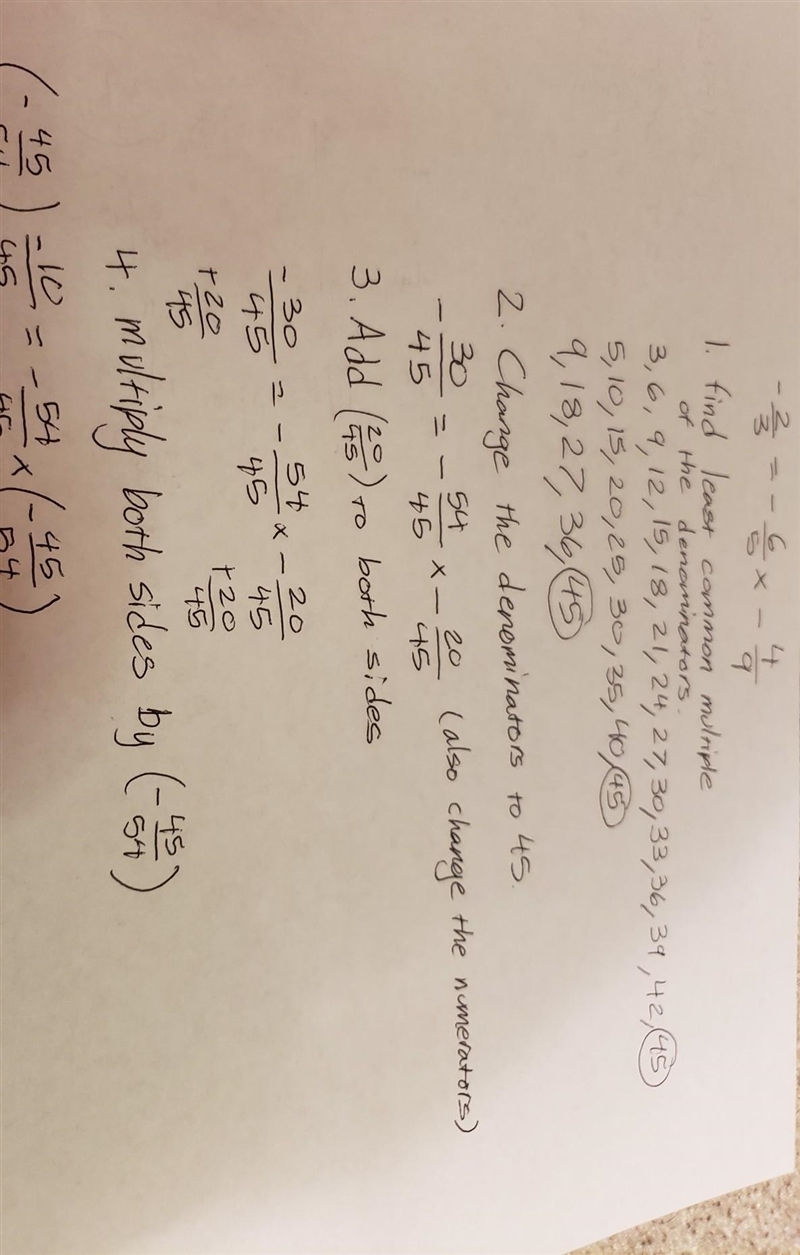 -2/3 = -6/5 x - 4/9
1. find least common multiple
of the denominators.
3, 6, 9, 12, 15, 18, 21, 24, 27, 30, 33, 36, 39, 42, 45
5, 10, 15, 20, 25, 30, 35, 40, 45
9, 18, 27, 36, 45
2. Change the denominators to 45.
-30/45 = -54/45 x - 20/45 (also change the numerators)
3. Add (20/45) to both sides
-30/45 = -54/45 x - 20/45
+20/45 +20/45
4. multiply both sides by (-45/54)
(-45/54) -10/45 = -54/45 x (-45/54)